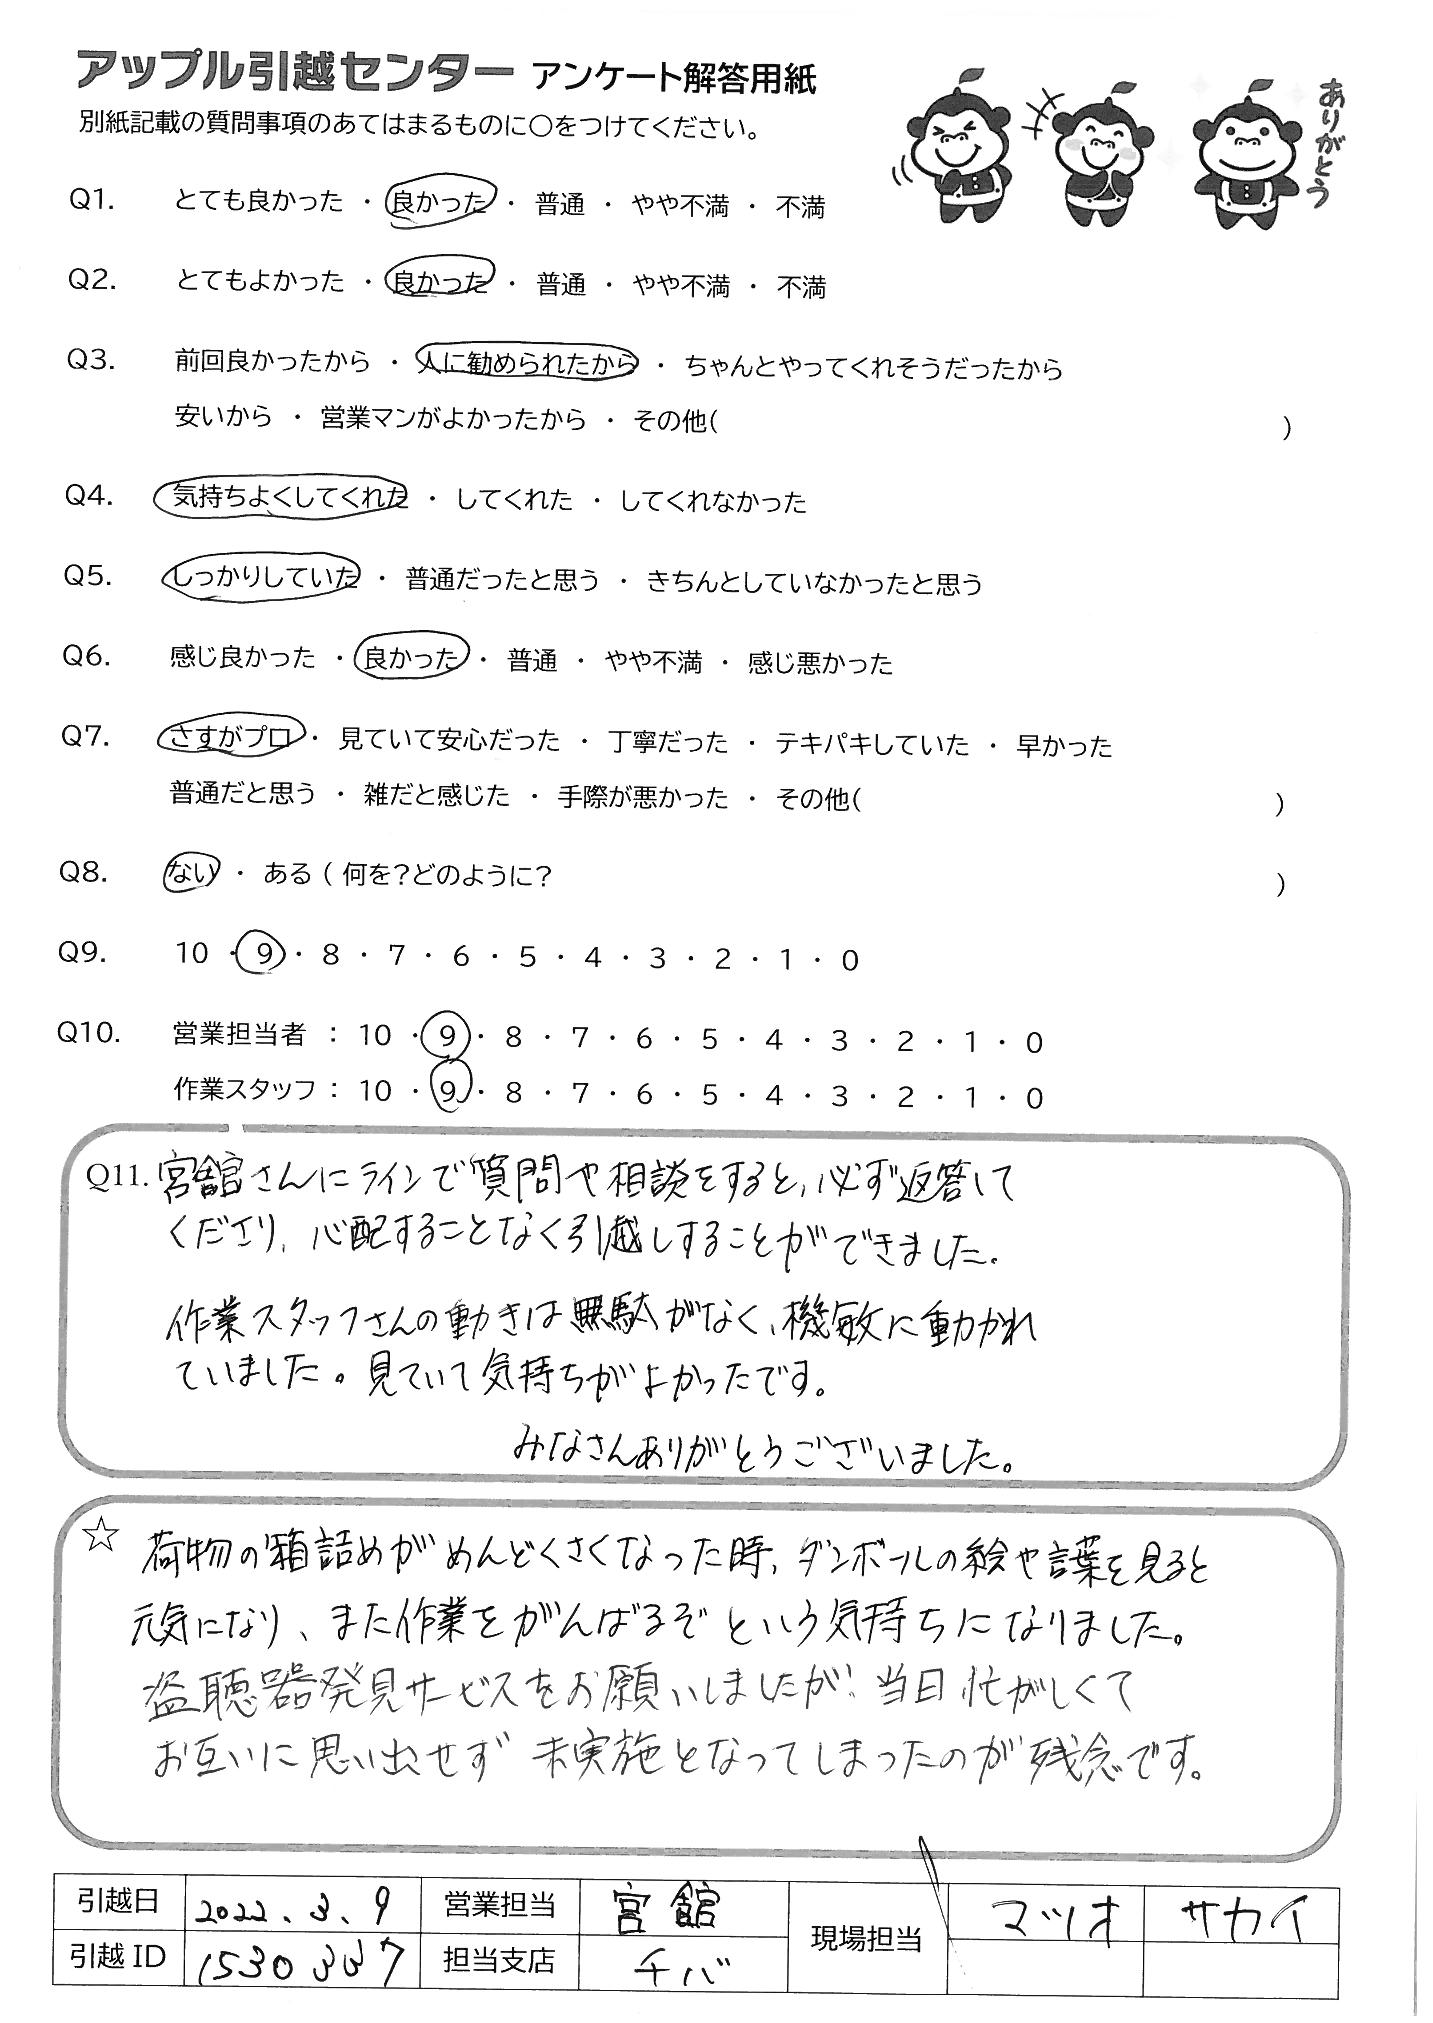 アップル引越センター アンケート解答用紙
別紙記載の質問事項のあてはまるものに○をつけてください。
ありがとう
Q1. とても良かった ・ 良かった ・ 普通 ・ やや不満 ・ 不満
Q2. とてもよかった ・ 良かった ・ 普通 ・ やや不満 ・ 不満
Q3. 前回良かったから ・ 人に勧められたから ・ ちゃんとやってくれそうだったから
安いから ・ 営業マンがよかったから ・ その他( )
Q4. 気持ちよくしてくれた ・ してくれた ・ してくれなかった
Q5. しっかりしていた ・ 普通だったと思う ・ きちんとしていなかったと思う
Q6. 感じ良かった ・ 良かった ・ 普通 ・ やや不満 ・ 感じ悪かった
Q7. さすがプロ ・ 見ていて安心だった ・ 丁寧だった ・ テキパキしていた ・ 早かった
普通だと思う ・ 雑だと感じた ・ 手際が悪かった ・ その他( )
Q8. ない ・ ある ( 何を?どのように? )
Q9. 10 ・ 9 ・ 8 ・ 7 ・ 6 ・ 5 ・ 4 ・ 3 ・ 2 ・ 1 ・ 0
Q10. 営業担当者 : 10 ・ 9 ・ 8 ・ 7 ・ 6 ・ 5 ・ 4 ・ 3 ・ 2 ・ 1 ・ 0
作業スタッフ : 10 ・ 9 ・ 8 ・ 7 ・ 6 ・ 5 ・ 4 ・ 3 ・ 2 ・ 1 ・ 0
Q11. 宮舘さんにラインで質問や相談をすると、必ず返答して
くださり、心配することなく引越しすることができました。
作業スタッフさんの動きは無駄がなく、機敏に動かれ
ていました。見ていて気持ちがよかったです。
みなさんありがとうございました。
☆ 荷物の箱詰めがめんどくさくなった時、ダンボールの絵や言葉を見ると
元気になり、また作業をがんばるぞという気持ちになりました。
盗聴器発見サービスをお願いしましたが、当日忙がしくて
お互いに思い出せず未実施となってしまったのが残念です。
引越日 2022.3.9 営業担当 宮舘 現場担当 マツオ サカイ
引越ID 1530337 担当支店 チバ